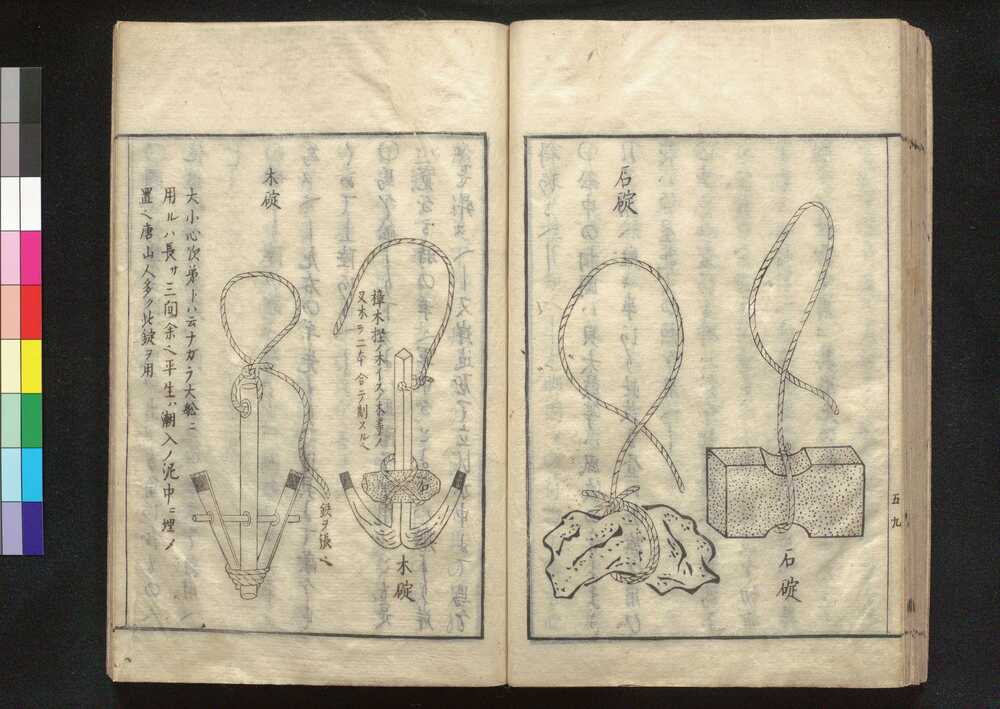 石碇
石碇
五九
木碇
樟木樫ノ木イスノ木等ノ
又木ヲ二本合テ制スルヘ
石
鉄ヲ張ヘ
木碇
大小心次第トハ云ナガラ大舩ニ
用ルハ長サ三間余ヘ平生ハ潮入ノ泥中ニ埋メ
置ヘ唐山人多ク此碇ヲ用